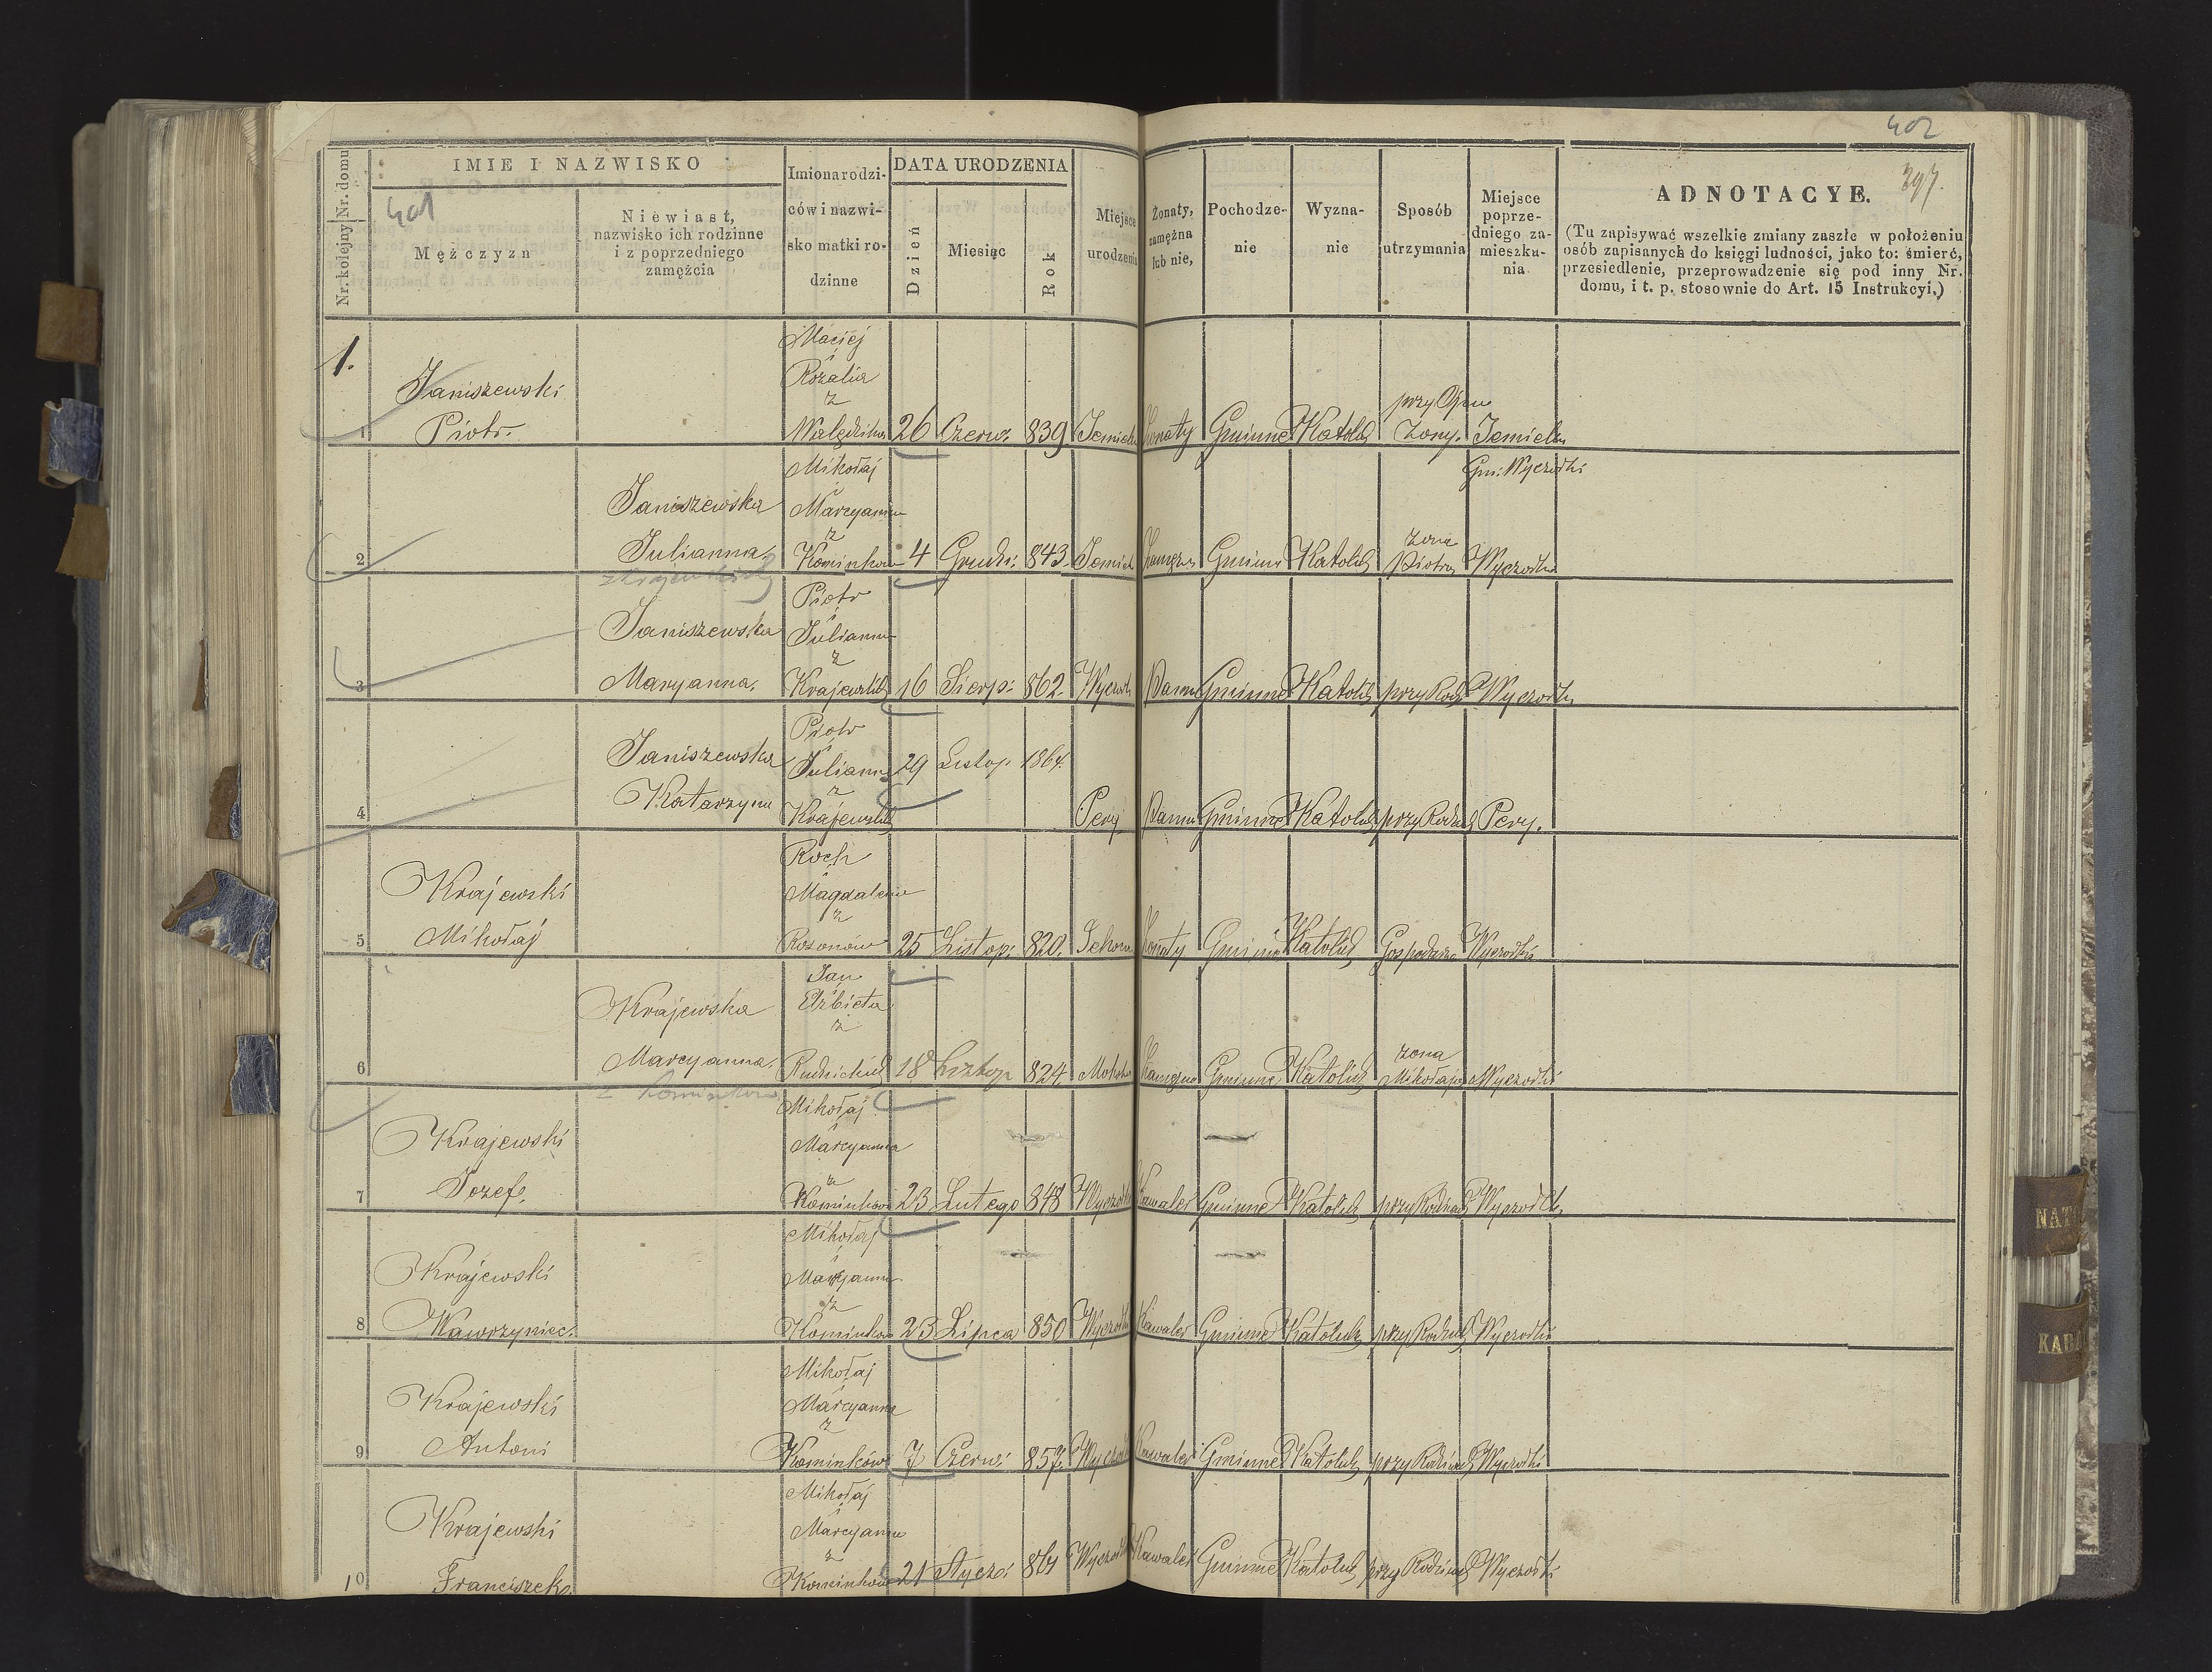 402
397.
401
Nr. kolejny Nr. domu
IMIE I NAZWISKO
Mężczyzn
Niewiast,
nazwisko ich rodzinne
i z poprzedniego
zamężcia
Imiona rodzi-
ców i nazwi-
sko matki ro-
dzinne
DATA URODZENIA
Dzień
Miesiąc
Rok
Miejsce
urodzenia
Żonaty,
zamężna
lub nie,
Pochodze-
nie
Wyzna-
nie
Sposób
utrzymania
Miejsce
poprze-
dniego za-
mieszka-
nia
ADNOTACYE.
(Tu zapisywać wszelkie zmiany zaszłe w położeniu
osób zapisanych do księgi ludności, jako to: śmierć,
przesiedlenie, przeprowadzenie się pod inny Nr.
domu, i t. p. stosownie do Art. 15 Instrukcyi.)
1.
Maciej
i
Rozalia
z
Janiszewski
przy Ojcu
1 Piotr. 26 Czerw: 839 Żonaty Gminne Katolik Żony.
Mikołaj
i
Gmi: Wyczółki
Janiszewska Maryanna
z
żona
2 Julianna Kominków 4 Grudn: 843. Zamężna Gminne Katolik Piotra Wyczółki
z Krajewskich
Piotr
i
Janiszewska Julianna
z
3 Maryanna. Krajewskich 16 Sierp: 862. Wyczółk Panna Gminne Katolik przy Rodz Wyczółk
Piotr
i
Janiszewska Julianna 29 Listop 1864.
z
4 Katarzyna Krajewskich Pery Panna Gminne Katolik przy Rodzic Pery.
Roch
i
Krajewski Magdalena
z
5 Mikołaj 25 Listop: 820. Żonaty Gminne Katolik Gospodarz Wyczółki
Jan
i
Krajewska Elżbieta
z
żona
6 Maryanna Rudnickich 18 Listop 824 Zamężna Gminne Katolik Mikołaja Wyczółki
z Kominków
Mikołaj
i
Krajewski Maryanna
z
7 Jozef. Kominków 23 Lutego 848 Wyczółk Kawaler Gminne Katolik przy Rodzicach Wyczółk
Mikołaj
i
Krajewski Maryanna
z
8 Wawrzyniec. Kominków 23 Lipca 850 Wyczółk Kawaler Gminne Katolik przy Rodzic Wyczółki
Mikołaj
i
Krajewski Maryanna
z
9 Antoni Kominków 7 Czerw: 857. Wyczółk Kawaler Gminne Katolik przy Rodzicach Wyczółki
Mikołaj
i
Krajewski Maryanna
z
10 Franciszek. Kominków 21 Stycz: Wyczółk Kawaler Gminne Katolik przy Rodzicach Wyczółki